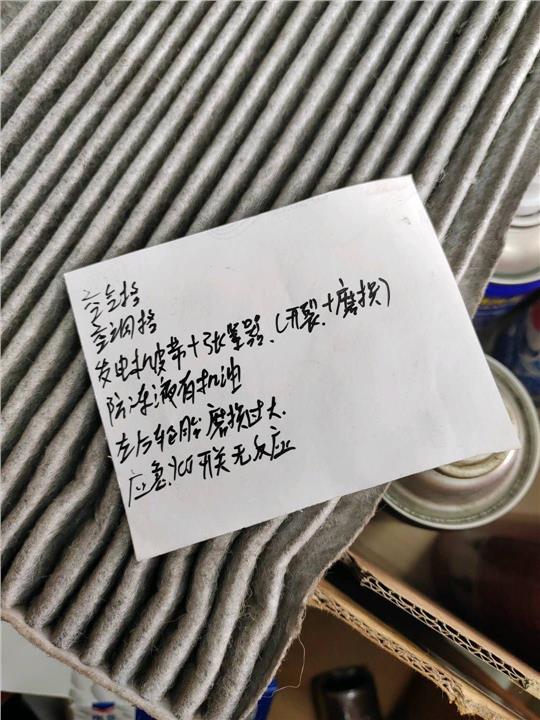 空气格
空调格
发电机皮带+张紧器.(开裂.+磨损)
防冻液有机油
左后轮胎磨损过大.
应急灯开关无反应